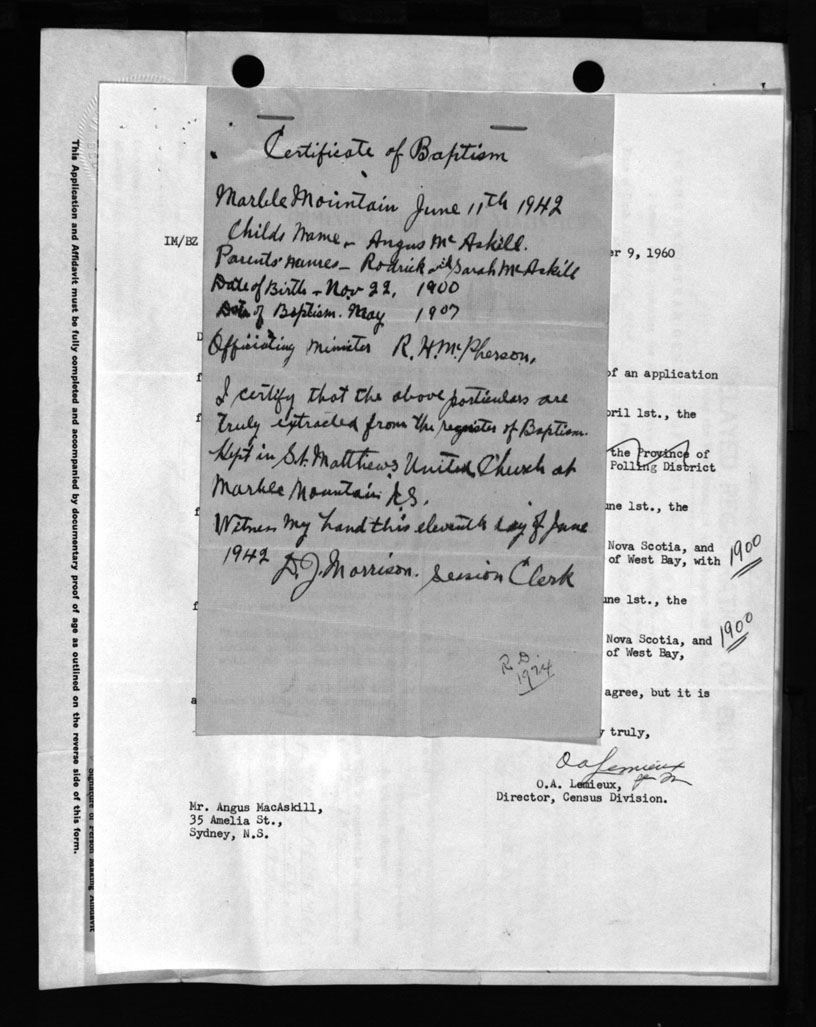 Certificate of Baptism
Marble Mountain June 11th 1942
Childs Name - Angus McAskill.
Parents' Names - Rodrick Sarah McAskill
Date of Birth - Nov 22, 1900
Date of Baptism. May 1907
Officiating Minister R. H. McPherson,
I certify that the above particulars are
truly extracted from the register of Baptism.
Kept in St. Matthews United Church at
Marble Mountain N.S.
Witness my hand this eleventh day of June
1942 D. J. Morrison. Session Clerk
R.D.
1924
IM/BZ
er 9, 1960
of an application
pril 1st., the
the Province of
Polling District
une 1st., the
Nova Scotia, and
of West Bay, with
1900
une 1st., the
Nova Scotia, and
of West Bay,
1900
agree, but it is
y truly,
O A Lemieux
O.A. Lemieux,
Director, Census Division.
Mr. Angus MacAskill,
35 Amelia St.,
Sydney, N.S.
This Application and Affidavit must be fully completed and accompanied by documentary proof of age as outlined on the reverse side of this form.
Signature of Person Making Affidavit